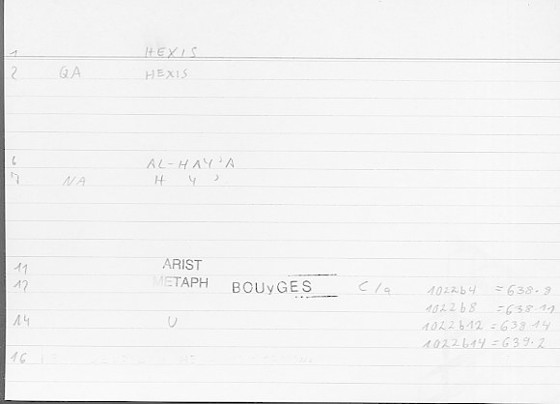 1 HEXIS
2 QA HEXIS
6 AL-HAY'A
7 NA H Y '
11 ARIST
12 METAPH BOUyGES C/a 1022b4 = 638.9
1022b8 = 638.11
14 U 1022b12 = 638.14
1022b14 = 639.2
16